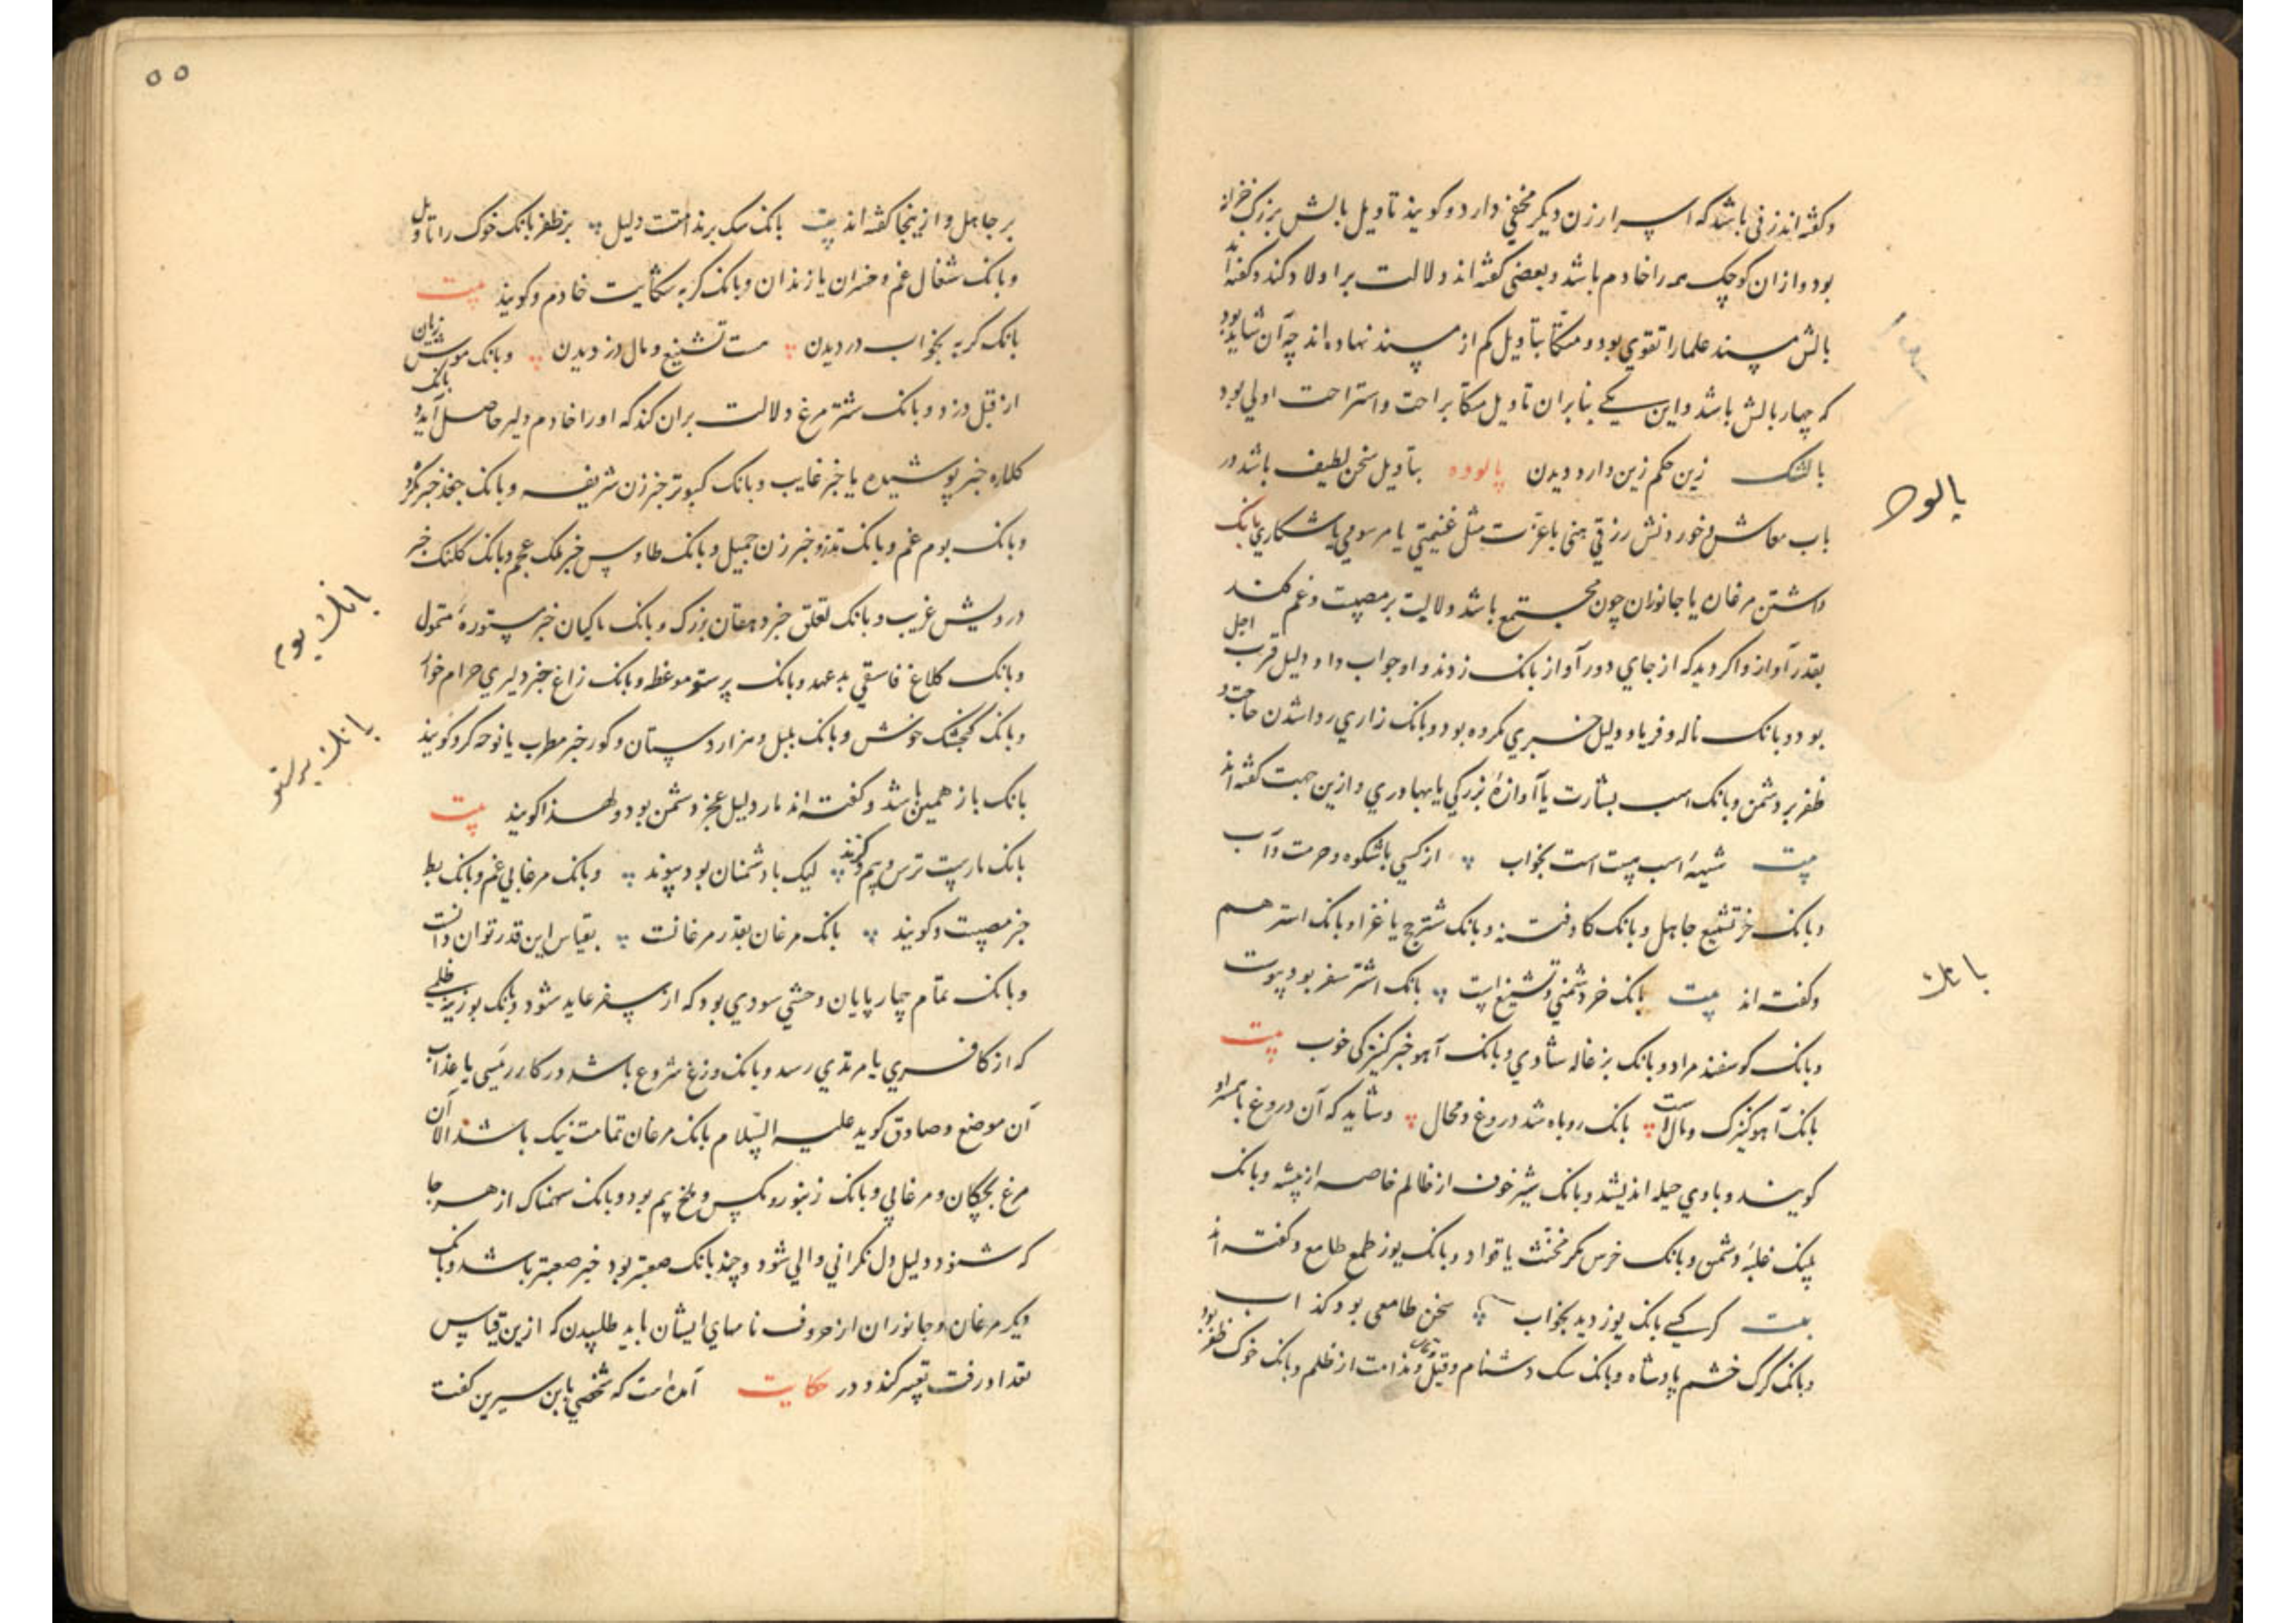 وکفته‌اند زنی باشد که اسرار زن دیکر مخفی دارد و کویند تاویل بالش بزرک خزانه
بود و از ان کوچک همه را خادم باشد و بعضی کفته‌اند دلالت بر اولاد کند و کفته‌اند
بالش مسند علما را تقوی بود و متکا بتاویل کم از مسند نهاده‌اند چه آن شاید بود
که چهار بالش باشد و این یکی بنابران تاویل متکا براحت و استراحت اولی بود
بالشک زین حکم زین دارد دیدن پالوده بتاویل سخن لطیف باشد در
باب معاش و خوردنش رزقی هنی باعزت مثل غنیمتی یا مرسومی یا شکاری بانک
داشتن مرغان یا جانوران چون مجتمع باشد دلالیت بر مصیبت و غم کند
بقدر آواز و اکر دید که از جای دور آواز بانک زدند و او جواب داد دلیل قرب اجل
بود و بانک ناله و فریاد دلیل خبری مکروه بود و بانک زاری روا شدن حاجت و
ظفر بر دشمن و بانک اسب بشارت یا آوازهٔ بزرکی یا بهادری و ازین جهت کفته‌اند
بیت شیههٔ اسب هیبت است بخواب از کسی باشکوه و حرمت و آب
و بانک خر تشنیع جاهل و بانک کاو فتنه و بانک شتر حج یا غزا و بانک استر هم
و کفته‌اند بیت بانک خر دشمنی و تشنیع است بانک اشتر سفر بود پیوست
و بانک کوسفند مراد و بانک بزغاله شادی و بانک آهو خبر کنیزکی خوب بیت
بانک آهو کنیزک و مال است بانک روباه شد دروغ و محال و شاید که آن دروغ با همسر او
کویند و با وی حیله اندیشد و بانک شیر خوف از ظالم خاصه از پیشه و بانک
پلنک غلبهٔ دشمن و بانک خرس مکر مخنث یا قواد و بانک یوز طمع طامع و کفته‌اند
بیت کر کسی بانک یوز دید بخواب سخن طامعی بود کذاب
و بانک کرک خشم پادشاه و بانک سک دشنام و قیل و قال و ندامت از ظلم و بانک خوک ظفر بود
پالوده
بانک
۵۵
بر جاهل و ازینجا کفته‌اند بیت بانک سک بر ندامتت دلیل بر ظفر بانک خوک را تاویل
و بانک شغال غم و خسران یا زندان و بانک کربه شکایت خادم و کویند بیت
بانک کربه بخواب در دیدن هست تشنیع و مال دزدیدن و بانک موش زیان
از قبل دزد و بانک شتر مرغ دلالت بران کند که او را خادم دلیر حاصل آید و بانک
کلاره خبر پوشیده یا خبر غایب و بانک کبوتر خبر زن شریفه و بانک جغد خبر مکروه
و بانک بوم غم و بانک تذرو خبر زن جمیل و بانک طاوس خبر ملک عجم و بانک کلنک خبر
درویش غریب و بانک لقلق خبر دهقان بزرک و بانک ماکیان خبر مستورهٔ متمول
و بانک کلاغ فاسقی بد عهد و بانک پرستو موعظه و بانک زاغ خبر دلیری حرام خوار
و بانک کنجشک خوش و بانک بلبل و هزاردستان و کور خبر مطرب یا نوحه کر و کویند
بانک باز همین باشد و کفته‌اند مار دلیل عجز دشمن بود و لهذا کویند بیت
بانک مارست ترس و بیم و کزند لیک با دشمنان بود پیوند و بانک مرغابی غم و بانک بط
خبر مصیبت و کویند بانک مرغان بقدر مرغانست بقیاس این قدر توان دانست
و بانک تمام چهارپایان وحشی سودی بود که از سفر عاید شود و بانک بوزینه ظلمی
که از کافری یا مرتدی رسد و بانک وزغ شروع باشد در کار رئیسی یا عذاب
آن موضع و صادق کوید علیه السلام بانک مرغان تمامت نیک باشد الا آن
مرغ بچکان و مرغابی و بانک زنبور و مکس و ملخ بیم بود و بانک سهمناک از هر جا
که شنود دلیل دل نکرانی والی شود و چند بانک صعبتر بود خبر صعبتر باشد و بانک
دیکر مرغان و جانوران از حروف نامهای ایشان باید طلبیدن که ازین قیاس
تعداد رفت تعبیر کند و در حکایت آمده است که شخصی با ابن سیرین کفت
بانک بوم
بانک پرستو